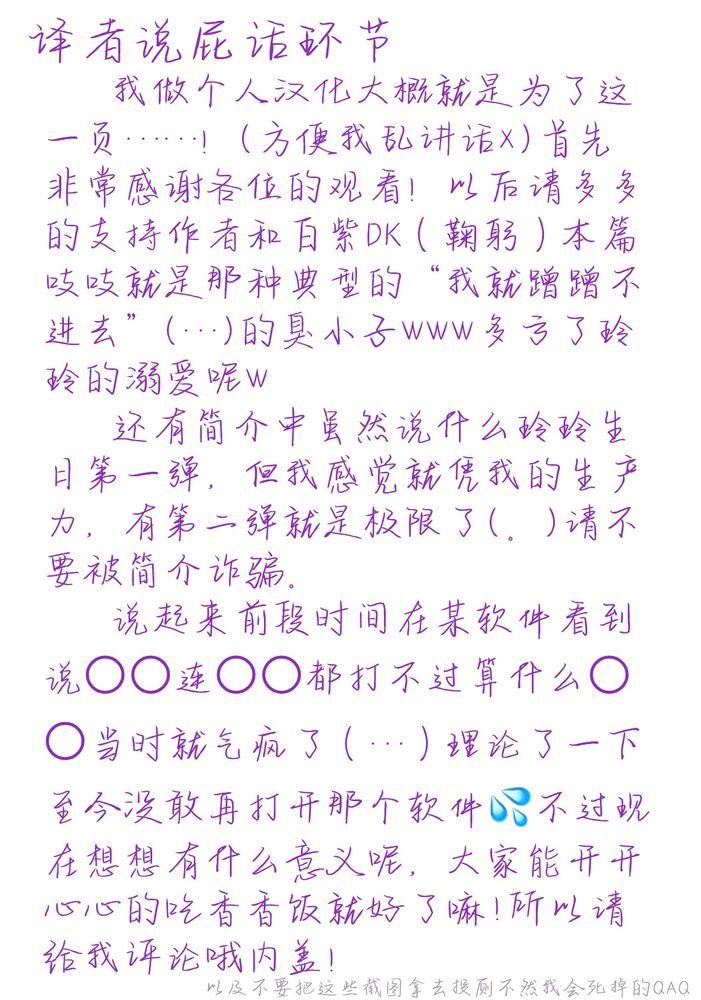 译者说屁话环节
我做个人汉化大概就是为了这
一页……！（方便我乱讲话X)首先
非常感谢各位的观看！以后请多多
的支持作者和百紫DK（鞠躬）本篇
吱吱就是那种典型的“我就蹭蹭不
进去”(…)的臭小子www多亏了玲
玲的溺爱呢w
还有简介中虽然说什么玲玲生
日第一弹，但我感觉就凭我的生产
力，有第二弹就是极限了(。)请不
要被简介诈骗。
说起来前段时间在某软件看到
说〇〇连〇〇都打不过算什么〇
〇当时就气疯了（…）理论了一下
至今没敢再打开那个软件💦不过现
在想想有什么意义呢，大家能开开
心心的吃香香饭就好了嘛！所以请
给我评论哦内盖！
以及不要把这些截图拿去投厕不然我会死掉的QAQ